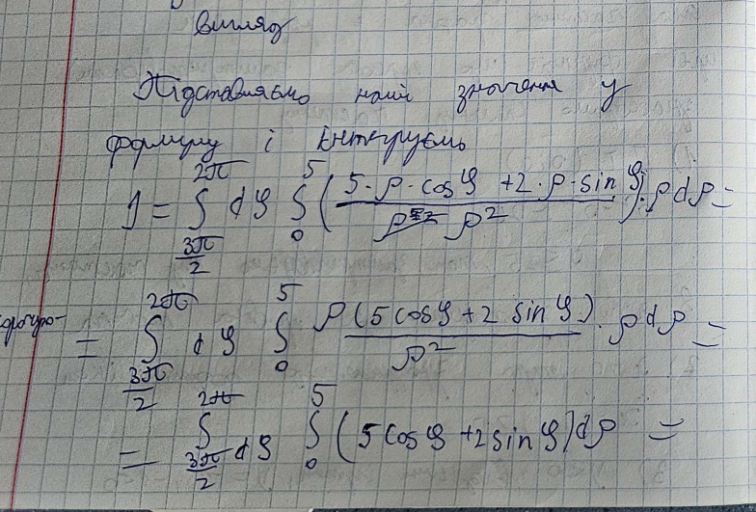 вигляд
Підставляємо наші значення у
формулу і інтегруємо
J = ∫_{3π/2}^{2π} dφ ∫_0^5 ( (5·ρ·cosφ + 2·ρ·sinφ) / ρ² )·ρdρ =
= ∫_{3π/2}^{2π} dφ ∫_0^5 ρ(5cosφ + 2 sinφ) / ρ² · ρdρ =
= ∫_{3π/2}^{2π} dφ ∫_0^5 (5cosφ + 2sinφ)dρ =